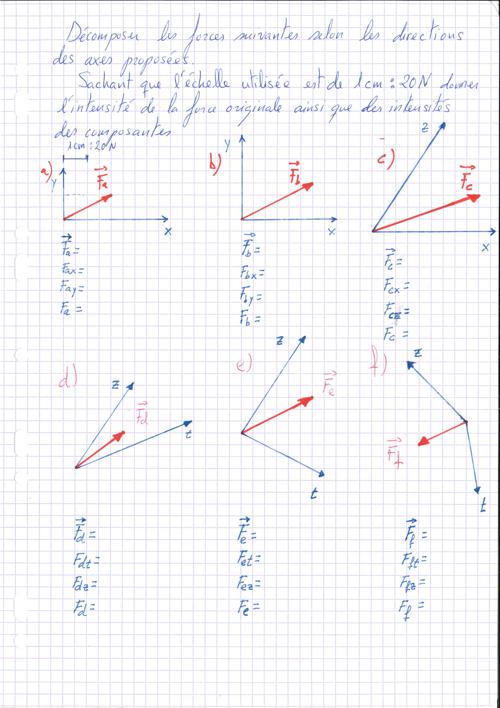 Décomposer les forces suivantes selon les directions
des axes proposées.
Sachant que l'échelle utilisée est de 1cm : 20N donner
l'intensité de la force originale ainsi que des intensités
des composantes
1cm : 20N
a)
y
Fa
x
b)
y
Fb
x
c)
z
Fc
x
Fa =
Fax =
Fay =
Fa =
Fb =
Fbx =
Fby =
Fb =
Fc =
Fcx =
Fcz =
Fc =
d)
z
Fd
t
e)
z
Fe
t
f)
z
Ff
t
Fd =
Fdt =
Fdz =
Fd =
Fe =
Fet =
Fez =
Fe =
Ff =
Fft =
Ffz =
Ff =